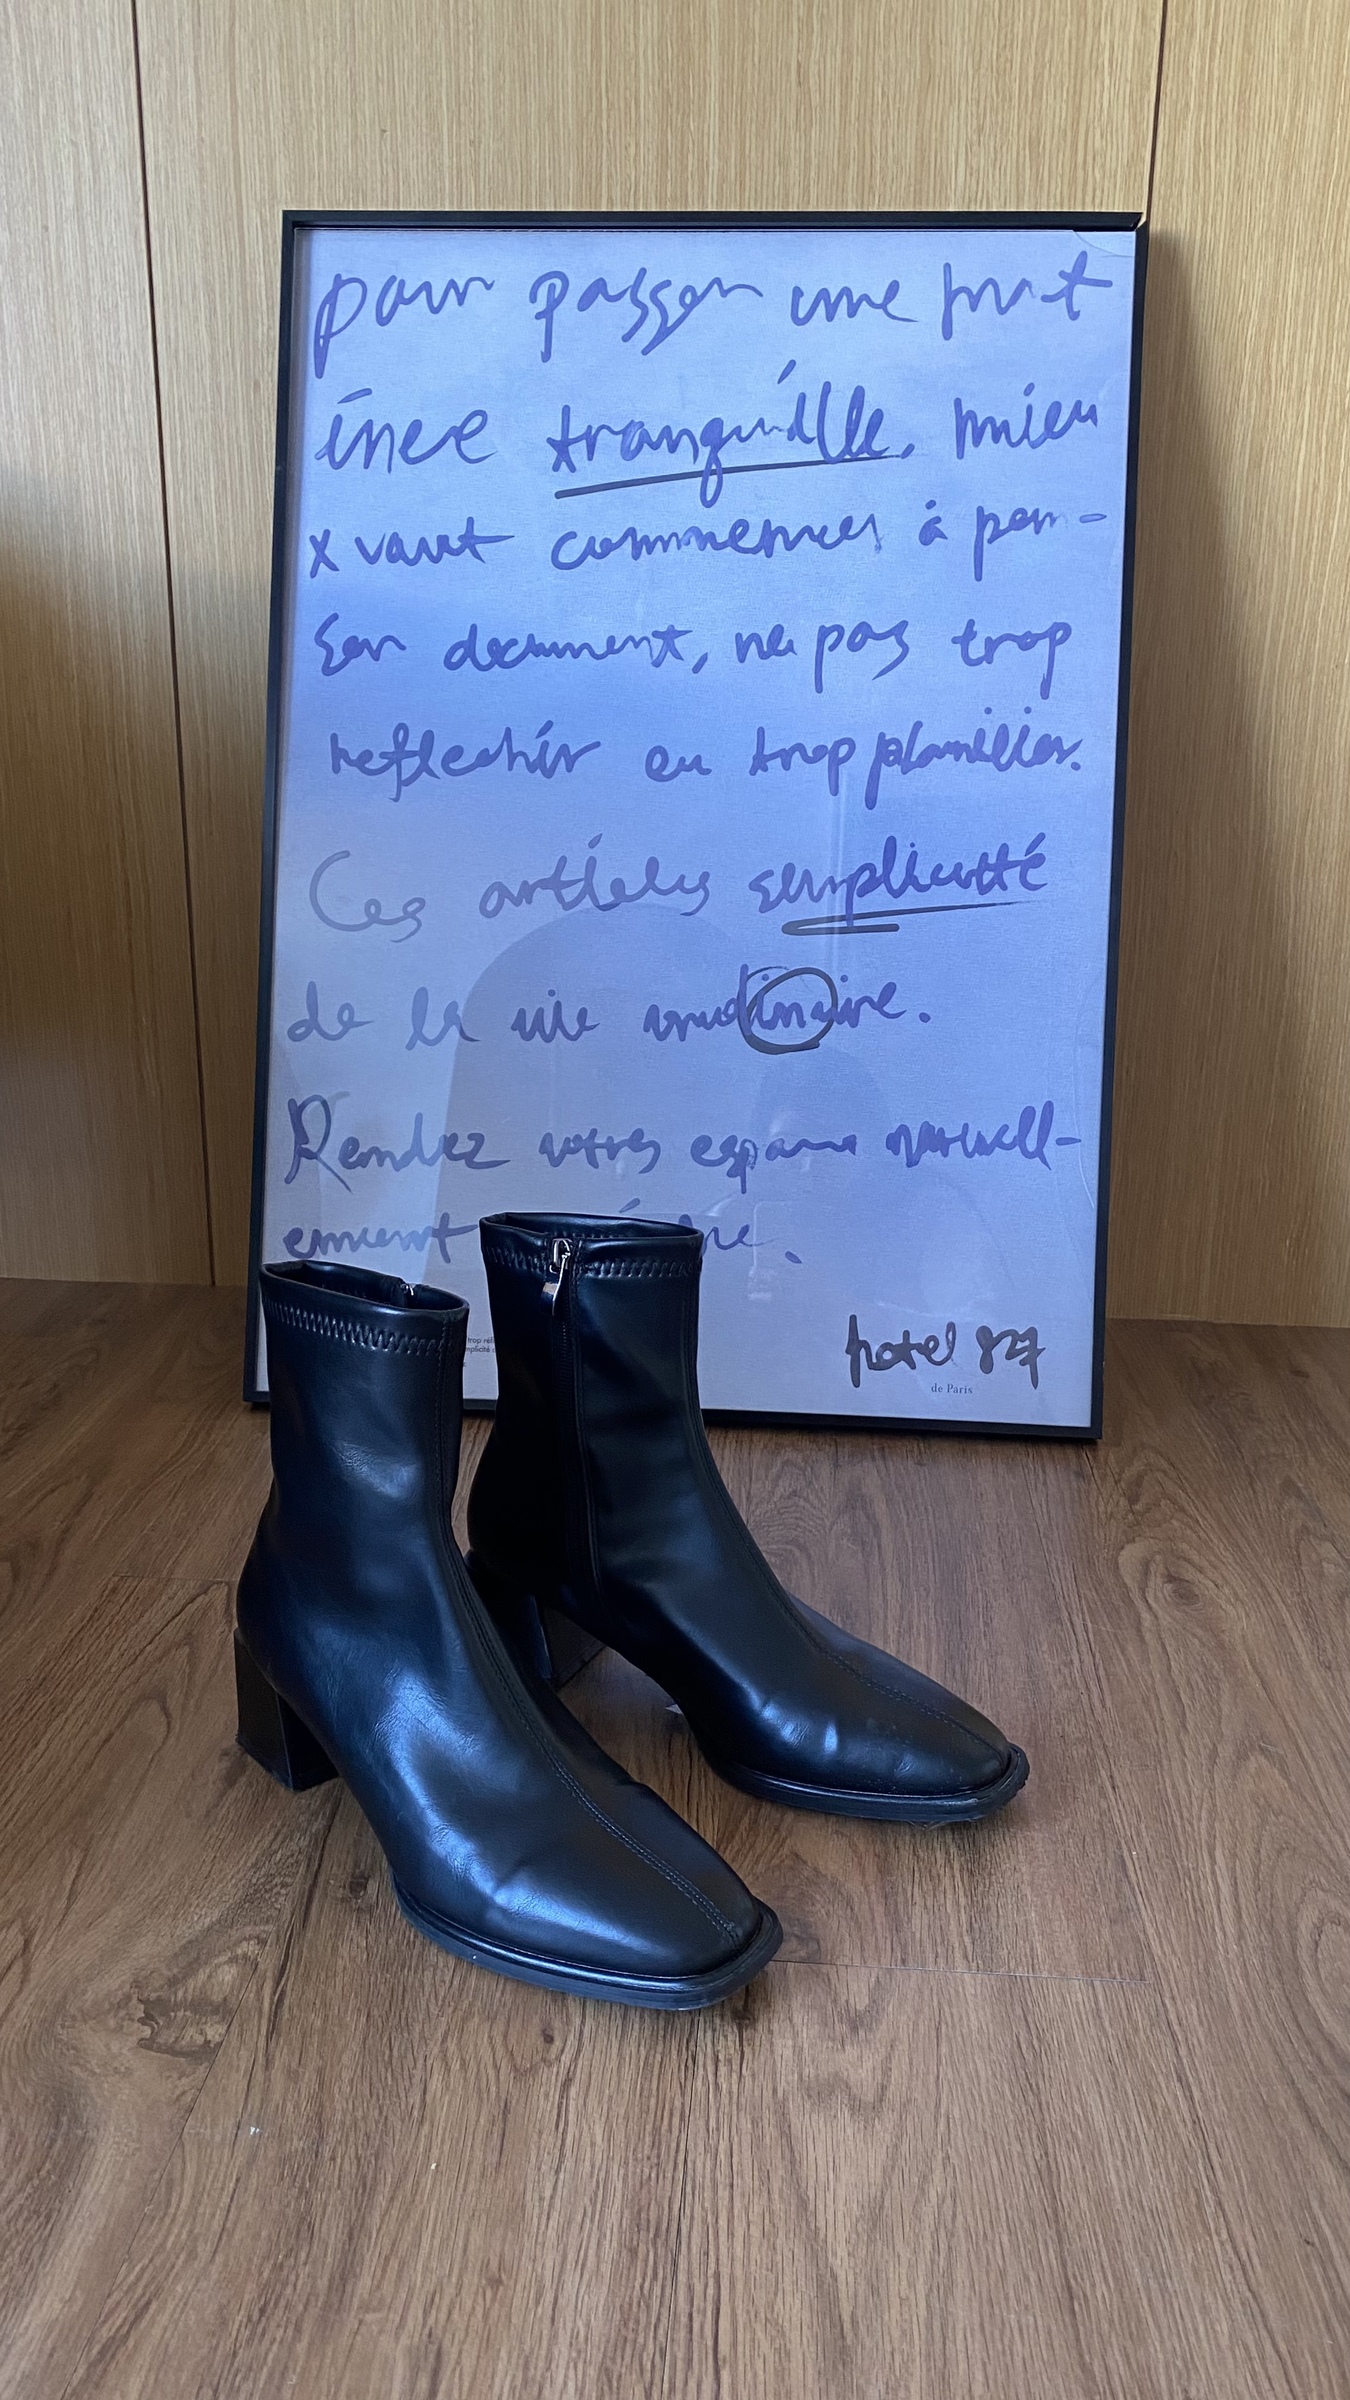 pour passer une mat
inée tranquille, mieu
x vaut commencer à pen-
ser document, ne pas trop
reflechir ou trop planifier.
Ces articles simplicité
de la vie ordinaire.
Rendez votre espace naturell-
ement
trop réfl
mplicité
hotel 827
de Paris